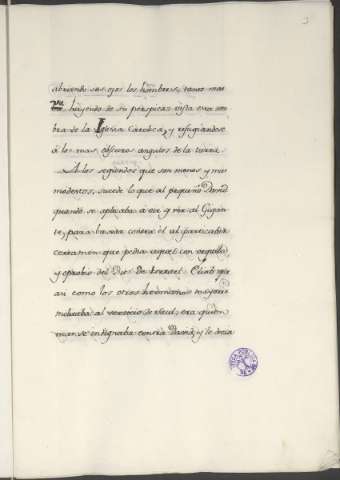 3
abriendo sus ojos los hombres, tanto mas
va huyendo de su perspicas vista esta som
bra de la Iglesia Catolica, y refugiandose
á los mas obscuros angulos de la tierra.
A los segundos que son menos y mas
modestos, sucede lo que al pequeño David
quando se aplicaba á oir q.e ria al Gigan
te, para baxar contra él al
certamen que pedia aquel con orgullo,
y oprobio del Dios de Israel. Eliab que
asi como los otros hermanos mayores
militaba al servicio de Saul, era quien
mas se indignaba contra David, y le decia